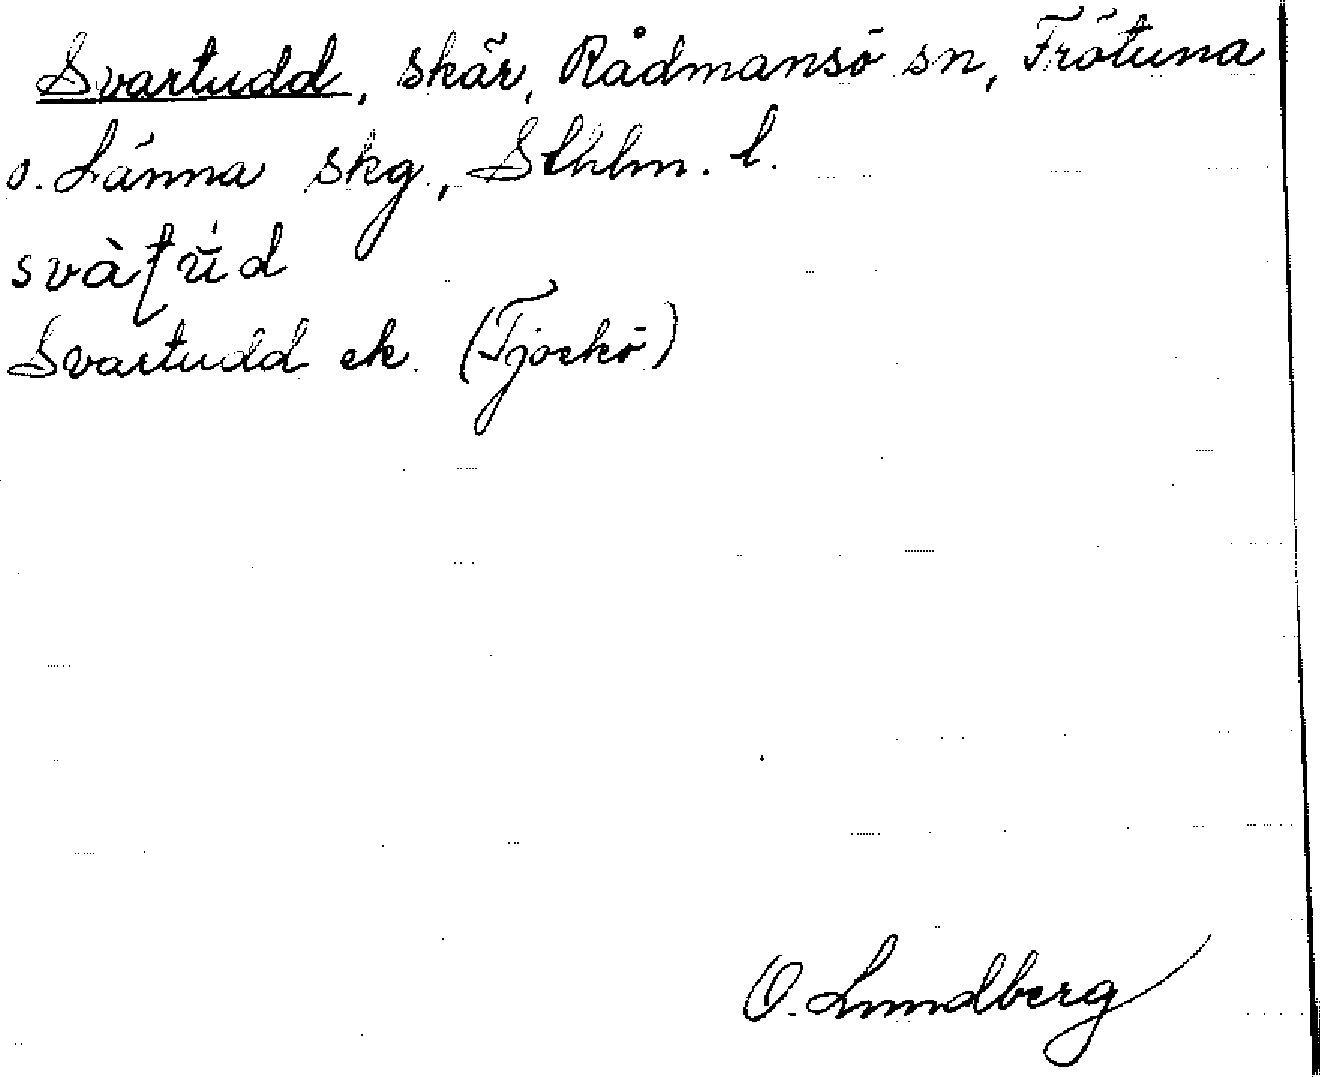 Svartudd, skär, Rådmansö sn, Frötuna
o. Länna skg., Sthlm. l.
Svartudd ek. (Tjockö)
O. Lundberg